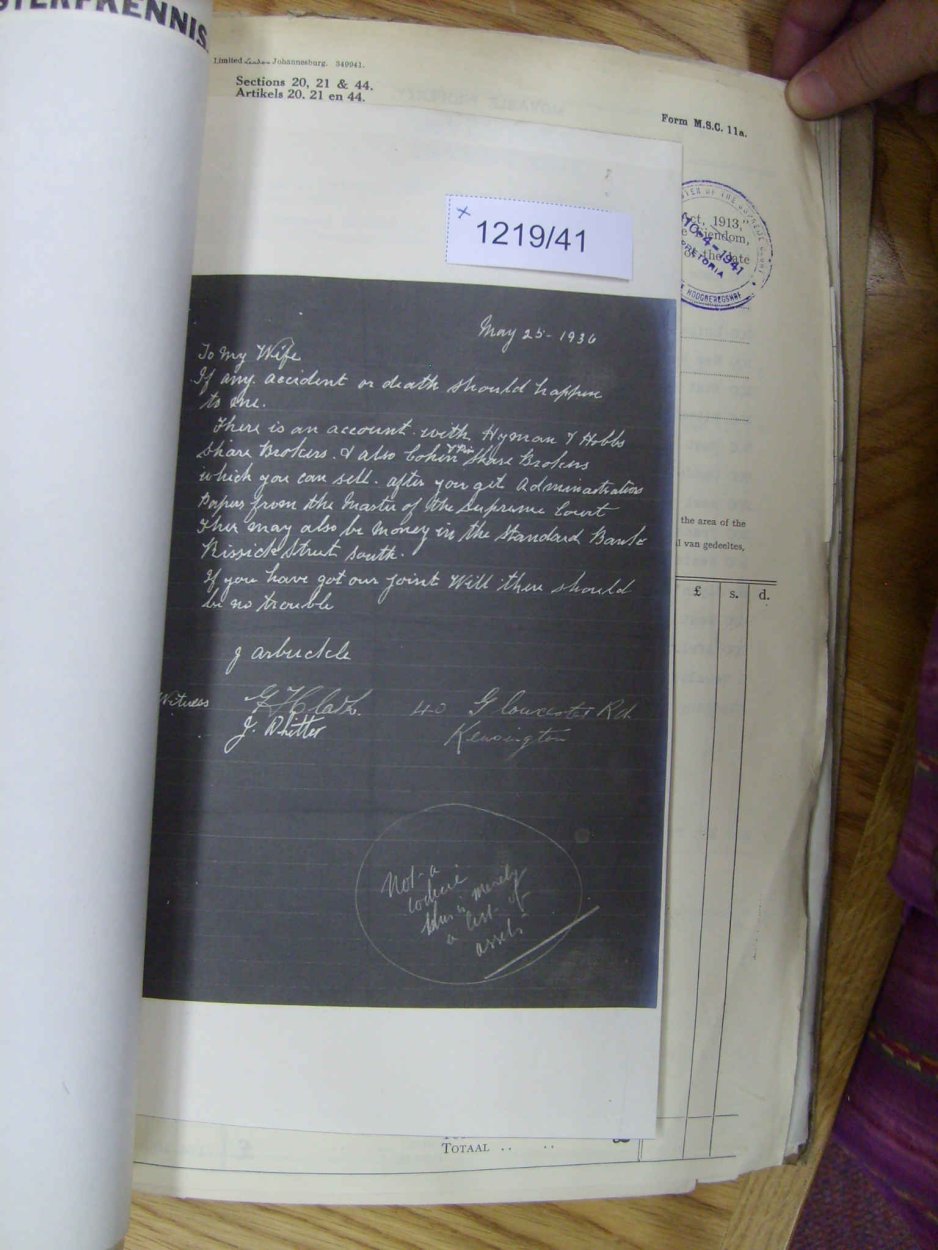 STERFKENNIS.
Limited London Johannesburg. 349941.
Sections 20, 21 & 44.
Artikels 20. 21 en 44.
Form M.S.C. 11a.
1219/41
ct, 1913,"
e Eiendom,
of the late
10-4-1941
PRETORIA
May 25 - 1936
To My Wife
If any accident or death should happen
to me.
There is an account with Hyman & Hobbs
Share Brokers. & also Cohen Share Brokers
which you can sell. after you get Administration
Papers from the Master of the Supreme Court
Ther may also be money in the Standard Bank
Rissick Street South.
If you have got our joint Will there should
be no trouble
J Arbuckle
Witness
40 Gloucester Rd
J. Whitter
Kensington
Not a
this is merely
a list of
assets
the area of the
l van gedeeltes,
£ s. d.
TOTAAL .. ..